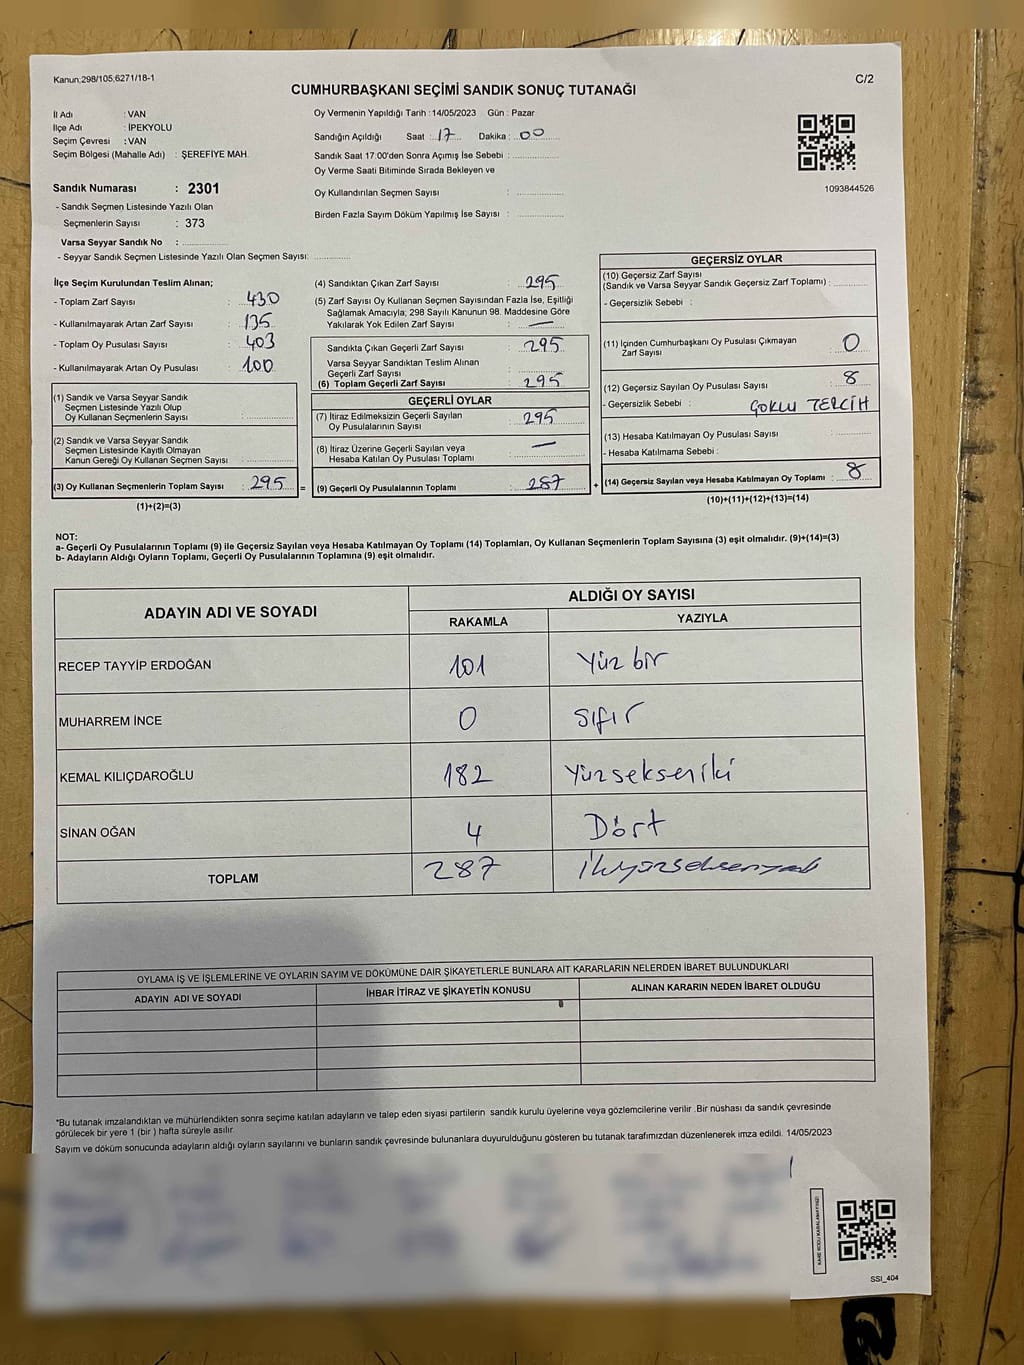 Kanun:298/105;6271/18-1
C/2
CUMHURBAŞKANI SEÇİMİ SANDIK SONUÇ TUTANAĞI
İl Adı : VAN
İlçe Adı : İPEKYOLU
Seçim Çevresi : VAN
Seçim Bölgesi (Mahalle Adı) : ŞEREFİYE MAH.
Sandık Numarası : 2301
- Sandık Seçmen Listesinde Yazılı Olan
Seçmenlerin Sayısı : 373
Varsa Seyyar Sandık No :
- Seyyar Sandık Seçmen Listesinde Yazılı Olan Seçmen Sayısı:
Oy Vermenin Yapıldığı Tarih :14/05/2023 Gün : Pazar
Sandığın Açıldığı Saat : 17 Dakika : 00
Sandık Saat 17:00'den Sonra Açımış İse Sebebi :
Oy Verme Saati Bitiminde Sırada Bekleyen ve
Oy Kullandırılan Seçmen Sayısı :
Birden Fazla Sayım Döküm Yapılmış İse Sayısı :
1093844526
İlçe Seçim Kurulundan Teslim Alınan;
- Toplam Zarf Sayısı : 430
- Kullanılmayarak Artan Zarf Sayısı : 135
- Toplam Oy Pusulası Sayısı : 403
- Kullanılmayarak Artan Oy Pusulası : 100
(1) Sandık ve Varsa Seyyar Sandık
Seçmen Listesinde Yazılı Olup
Oy Kullanan Seçmenlerin Sayısı :
(2) Sandık ve Varsa Seyyar Sandık
Seçmen Listesinde Kayıtlı Olmayan
Kanun Gereği Oy Kullanan Seçmen Sayısı :
(3) Oy Kullanan Seçmenlerin Toplam Sayısı : 295 =
(1)+(2)=(3)
(4) Sandıktan Çıkan Zarf Sayısı : 295
(5) Zarf Sayısı Oy Kullanan Seçmen Sayısından Fazla İse, Eşitliği
Sağlamak Amacıyla; 298 Sayılı Kanunun 98. Maddesine Göre
Yakılarak Yok Edilen Zarf Sayısı : —
Sandıkta Çıkan Geçerli Zarf Sayısı : 295
Varsa Seyyar Sandıktan Teslim Alınan
Geçerli Zarf Sayısı :
(6) Toplam Geçerli Zarf Sayısı : 295
GEÇERLİ OYLAR
(7) İtiraz Edilmeksizin Geçerli Sayılan
Oy Pusulalarının Sayısı : 295
(8) İtiraz Üzerine Geçerli Sayılan veya
Hesaba Katılan Oy Pusulası Toplamı : —
(9) Geçerli Oy Pusulalarının Toplamı : 287 +
GEÇERSİZ OYLAR
(10) Geçersiz Zarf Sayısı
(Sandık ve Varsa Seyyar Sandık Geçersiz Zarf Toplamı) :
- Geçersizlik Sebebi :
(11) İçinden Cumhurbaşkanı Oy Pusulası Çıkmayan
Zarf Sayısı : 0
(12) Geçersiz Sayılan Oy Pusulası Sayısı : 8
- Geçersizlik Sebebi : ÇOKLU TERCİH
(13) Hesaba Katılmayan Oy Pusulası Sayısı :
- Hesaba Katılmama Sebebi :
(14) Geçersiz Sayılan veya Hesaba Katılmayan Oy Toplamı : 8
(10)+(11)+(12)+(13)=(14)
NOT:
a- Geçerli Oy Pusulalarının Toplamı (9) ile Geçersiz Sayılan veya Hesaba Katılmayan Oy Toplamı (14) Toplamları, Oy Kullanan Seçmenlerin Toplam Sayısına (3) eşit olmalıdır. (9)+(14)=(3)
b- Adayların Aldığı Oyların Toplamı, Geçerli Oy Pusulalarının Toplamına (9) eşit olmalıdır.
ADAYIN ADI VE SOYADI
ALDIĞI OY SAYISI
RAKAMLA YAZIYLA
RECEP TAYYİP ERDOĞAN 101 Yüz bir
MUHARREM İNCE 0 Sıfır
KEMAL KILIÇDAROĞLU 182 Yüzsekseniki
SİNAN OĞAN 4 Dört
TOPLAM 287
OYLAMA İŞ VE İŞLEMLERİNE VE OYLARIN SAYIM VE DÖKÜMÜNE DAİR ŞİKAYETLERLE BUNLARA AİT KARARLARIN NELERDEN İBARET BULUNDUKLARI
ADAYIN ADI VE SOYADI İHBAR İTİRAZ VE ŞİKAYETİN KONUSU ALINAN KARARIN NEDEN İBARET OLDUĞU
*Bu tutanak imzalandıktan ve mühürlendikten sonra seçime katılan adayların ve talep eden siyasi partilerin sandık kurulu üyelerine veya gözlemcilerine verilir .Bir nüshası da sandık çevresinde
görülecek bir yere 1 (bir ) hafta süreyle asılır.
Sayım ve döküm sonucunda adayların aldığı oyların sayılarını ve bunların sandık çevresinde bulunanlara duyurulduğunu gösteren bu tutanak tarafımızdan düzenlenerek imza edildi. 14/05/2023
KARE KODU KARALAMAYINIZ!
SSI_404